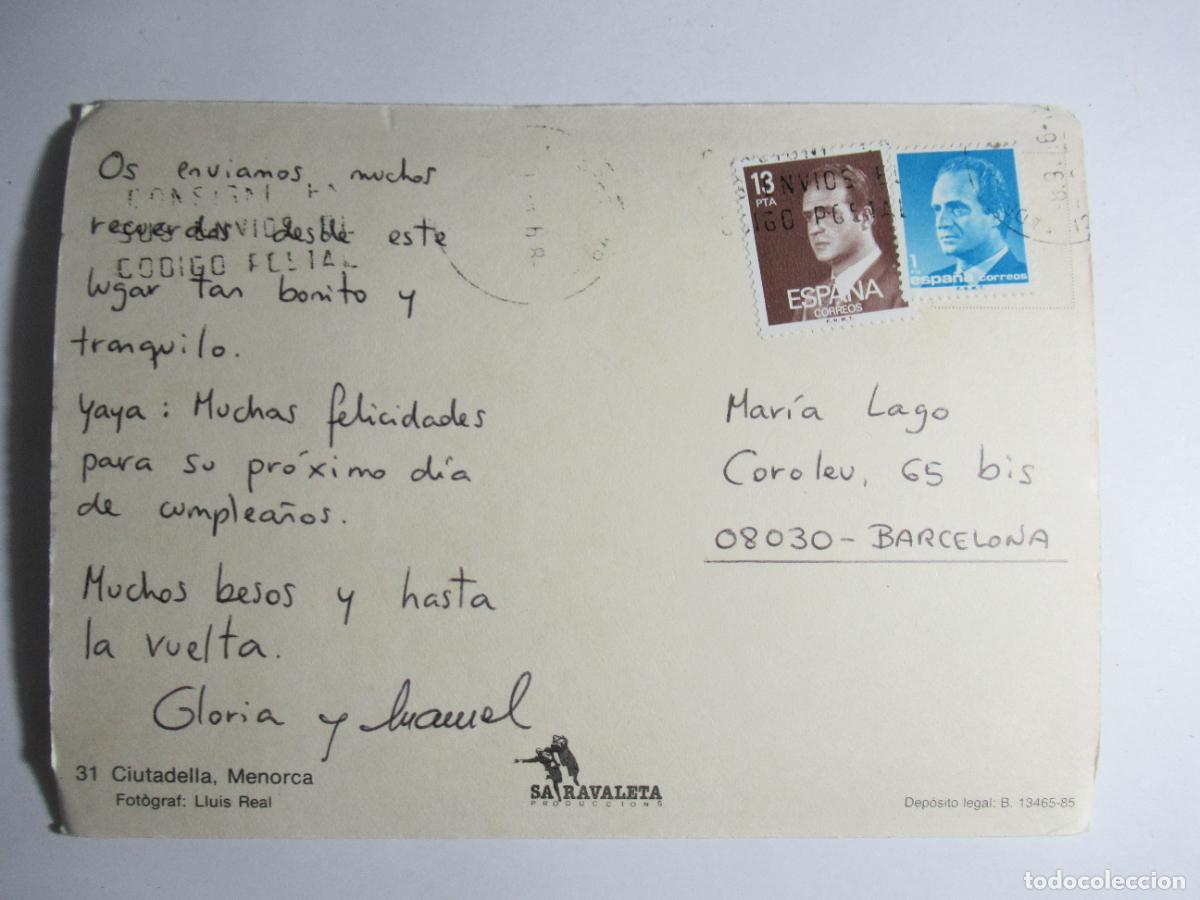 Os enviamos muchos
recuerdos desde este
lugar tan bonito y
tranquilo.
Yaya: Muchas felicidades
para su próximo día
de cumpleaños.
Muchos besos y hasta
la vuelta.
Gloria y Manuel
CONSIGNE EN
SUS ENVIOS EL
CODIGO POSTAL
NVIOS EL
IGO POSTAL
13
PTA
ESPAÑA
CORREOS
F.N.M.T.
1
PTA
españa correos
F.N.M.T.
María Lago
Coroleu, 65 bis
08030-BARCELONA
31 Ciutadella, Menorca
Fotògraf: Lluis Real
SA RAVALETA
PRODUCCIONS
Depósito legal: B. 13465-85
todocoleccion